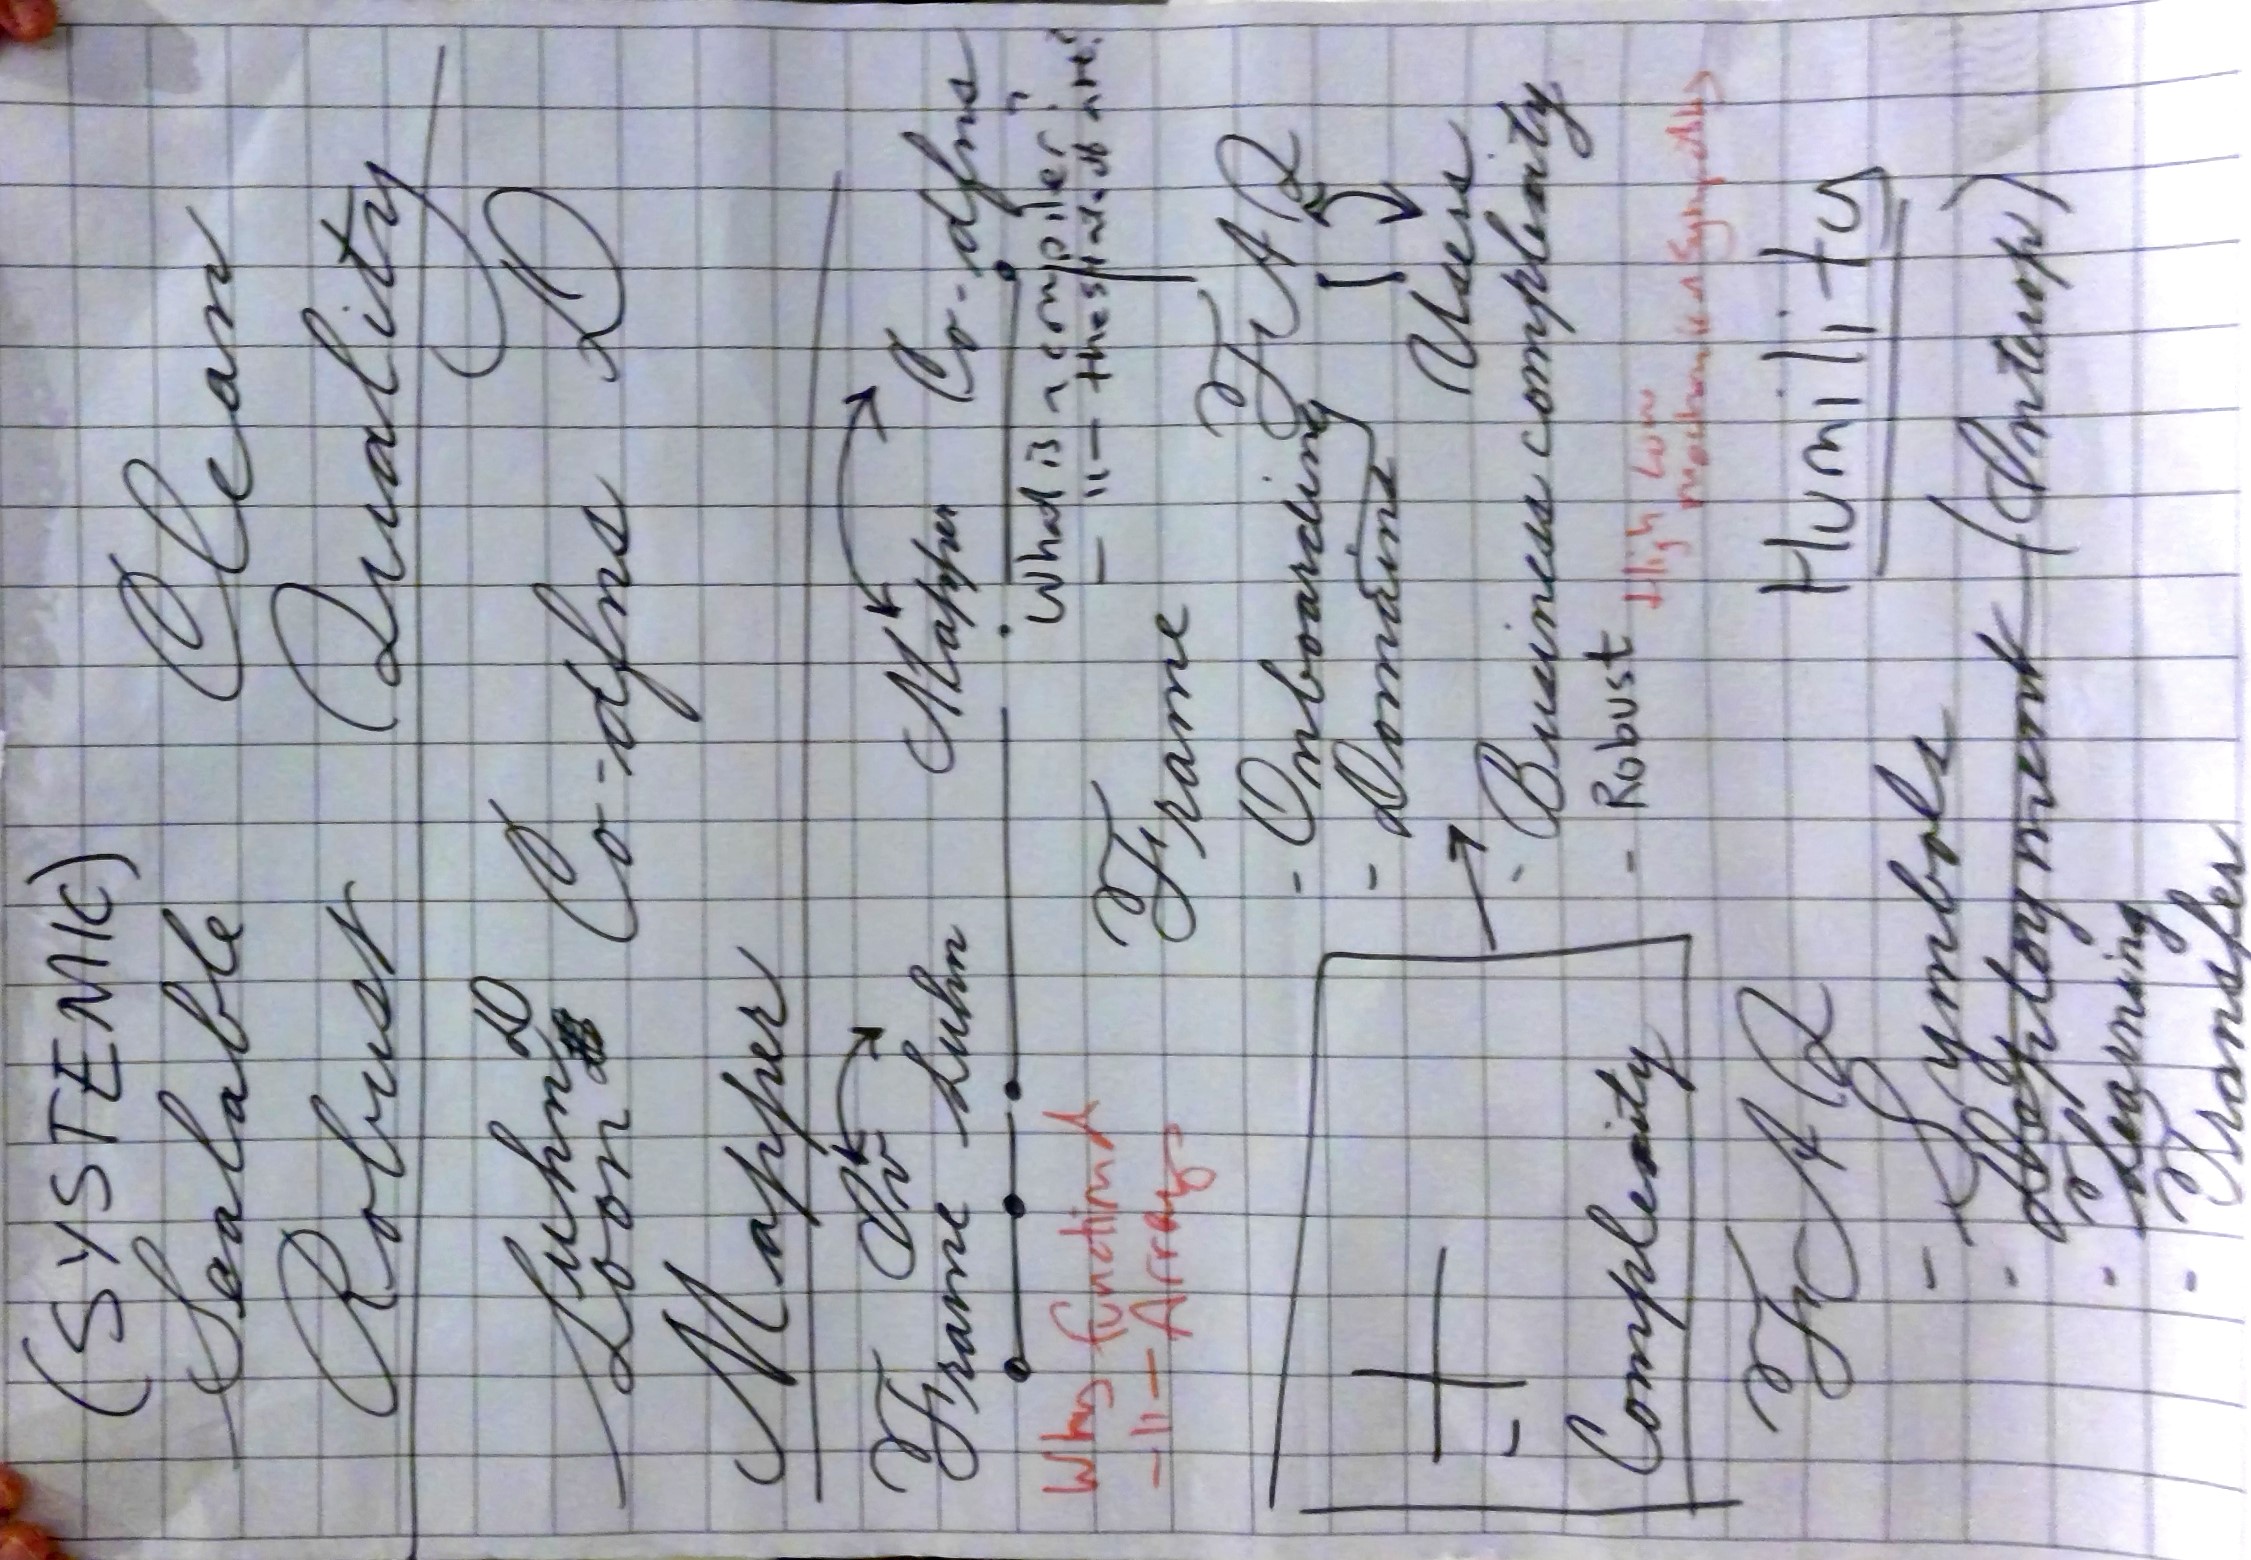 (SYSTEMIC)
Scalable Clean
Robust Quality
Luhn D
Loon Co-dfns D
Mapper
Frame Luhn Mapper Co-dfns
Why functional
-"- Arrays
What is a compiler?
-"- the state of art?
Frame
FAQ
- Onboarding
- Domains
Users
- Business complexity
- Robust
High Low
Mechanical Sympathy
+
-
Complexity
FAQ
Humility
- Symbols
- Deployment (Interop)
- Learning
- Transfer